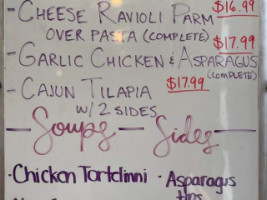 - Cheese Ravioli Parm $16.99
over pasta (complete)
- Garlic Chicken & Asparagus $17.99
(complete)
- Cajun Tilapia $17.99
w/ 2 sides
— Soups — Sides —
· Chicken Tortelinni · Asparagus
tips